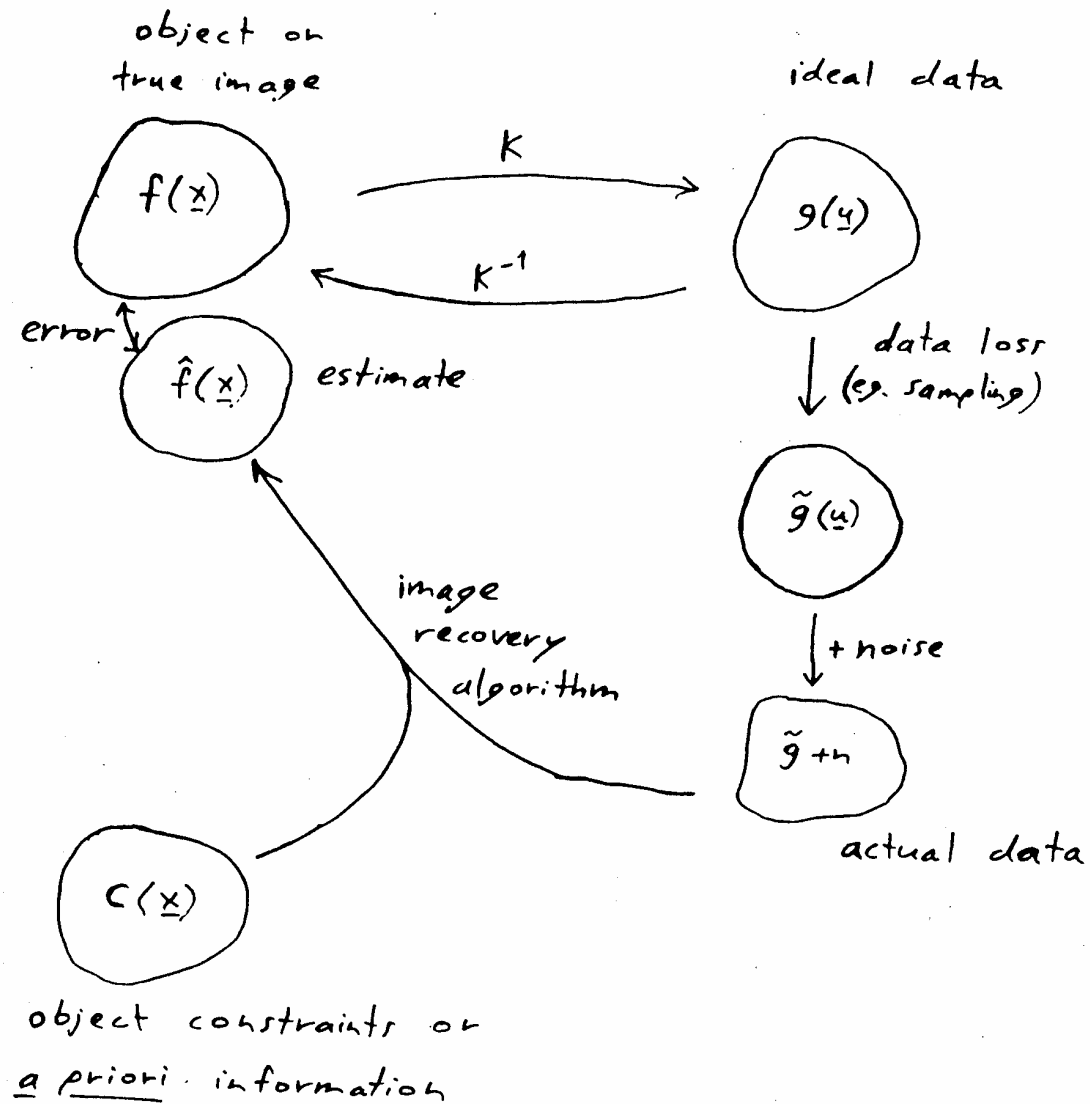 object or
true image
ideal data
f(x)
K
g(u)
K⁻¹
error
f̂(x)
estimate
data loss
(eg. sampling)
g̃(u)
image
recovery
algorithm
+ noise
g̃ + n
actual data
C(x)
object constraints or
a priori information